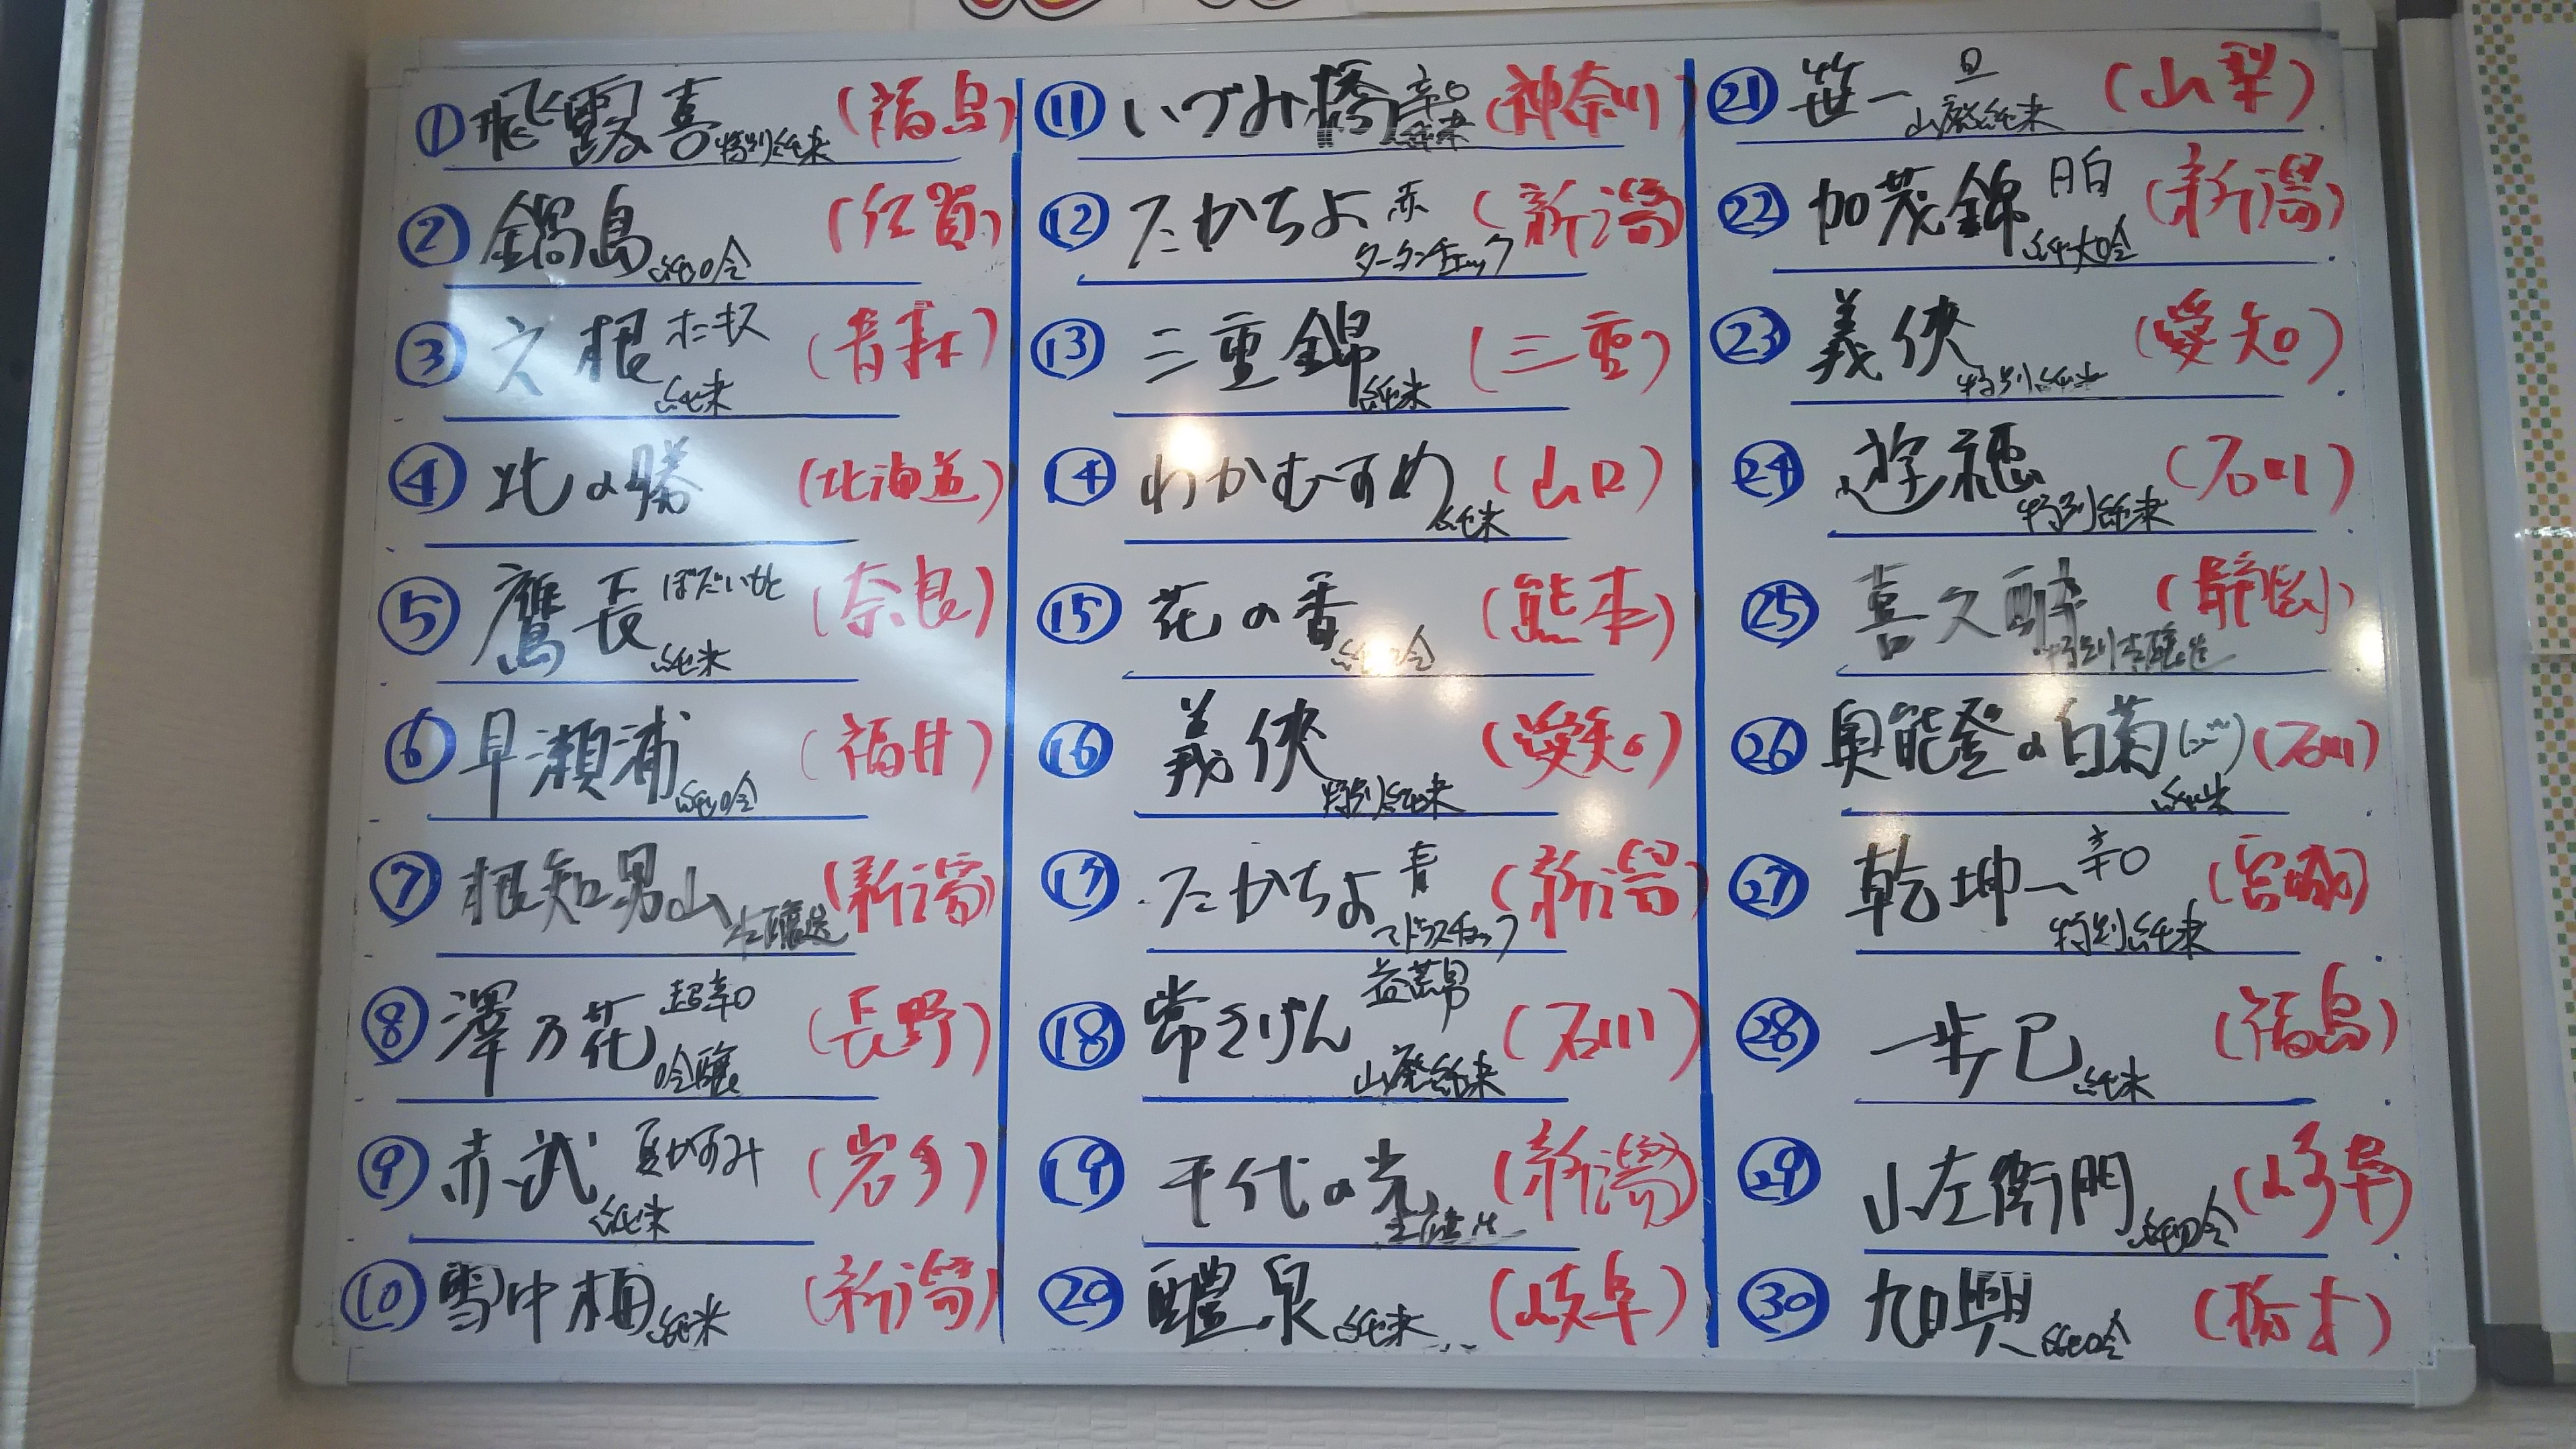 ① 飛露喜 特別純米 (福島)
② 鍋島 純吟 (佐賀)
③ 六根 オニキス 純米 (青森)
④ 北の勝 (北海道)
⑤ 鷹長 ぼだいもと 純米 (奈良)
⑥ 早瀬浦 純吟 (福井)
⑦ 根知男山 本醸造 (新潟)
⑧ 澤乃花 超辛口 吟醸 (長野)
⑨ 赤武 夏がすみ 純米 (岩手)
⑩ 雪中梅 純米 (新潟)
⑪ いづみ橋 辛口 純米 (神奈川)
⑫ たかちよ 赤 タータンチェック (新潟)
⑬ 三重錦 純米 (三重)
⑭ わかむすめ 純米 (山口)
⑮ 花の香 純吟 (熊本)
⑯ 義侠 特別純米 (愛知)
⑰ たかちよ 青 マドラスチェック (新潟)
⑱ 常きげん 益荒男 山廃純米 (石川)
⑲ 千代の光 (新潟)
⑳ 醴泉 純米 (岐阜)
㉑ 笹一 旦 山廃純米 (山梨)
㉒ 加茂錦 純大吟 (新潟)
㉓ 義侠 特別純米 (愛知)
㉔ 遊穂 特別純米 (石川)
㉕ 喜久酔 特別本醸造 (静岡)
㉖ 奥能登の白菊 純米 (石川)
㉗ 乾坤一 辛口 特別純米 (宮城)
㉘ 一歩己 純米 (福島)
㉙ 小左衛門 純吟 (岐阜)
㉚ 旭興 純吟 (栃木)